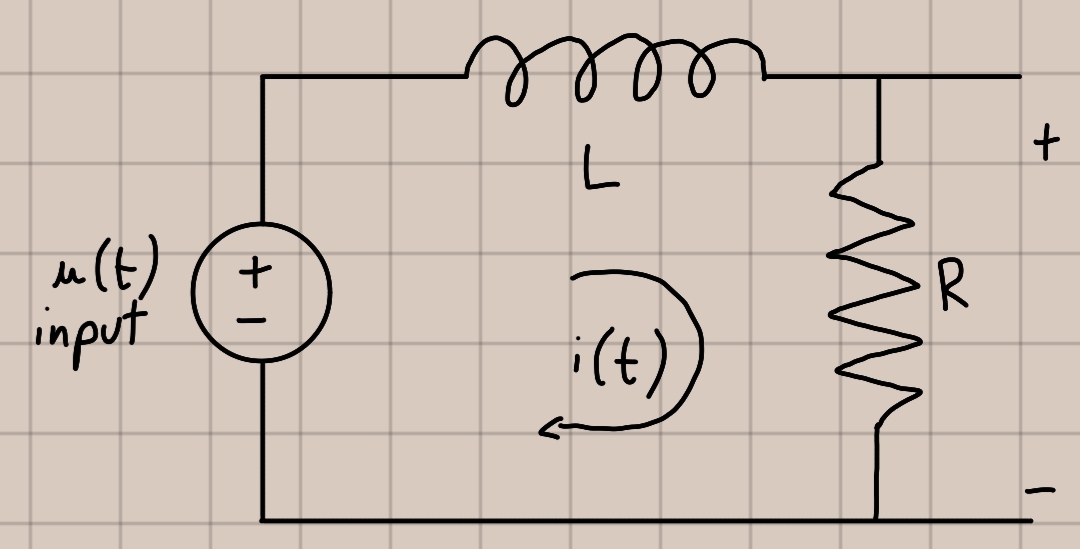 L
+
u(t)
input
+
−
i(t)
R
−